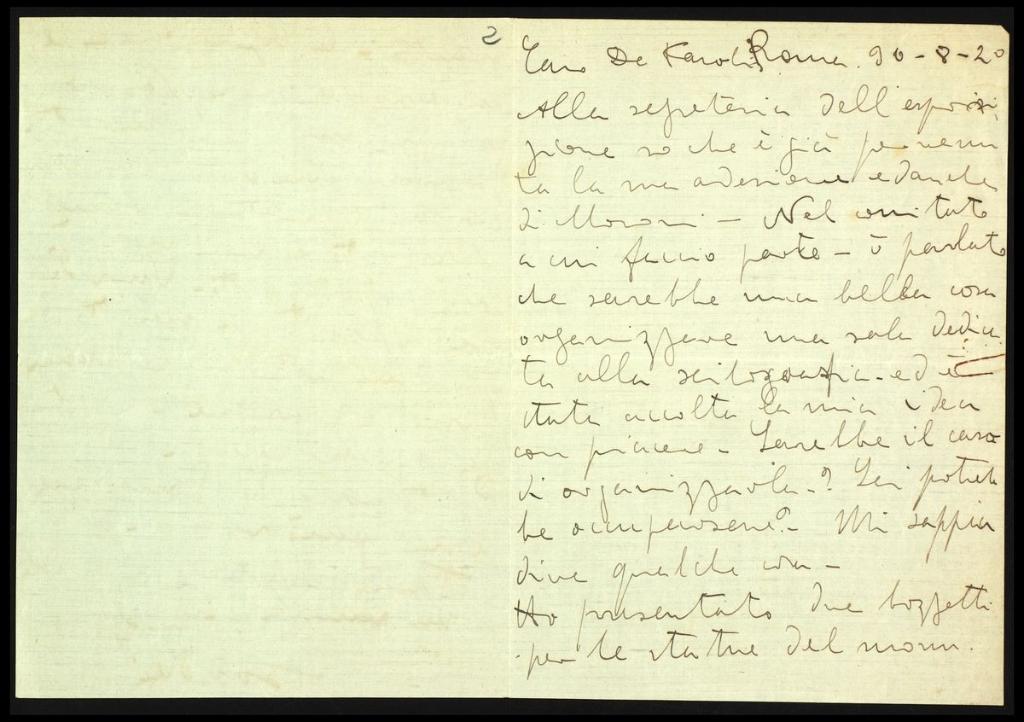 2
Caro De Karolis Roma. 30-8-20
Alla segreteria dell'esposi
zione so che è già pervenu
ta la mia adesione ed anche
di Moroni - Nel comitato
a cui faccio parte - ò parlato
che sarebbe una bella cosa
organizzare una sala dedica
ta alla silografia - ed è
stata accolta la mia idea
con piacere - Sarebbe il caso
di organizzarla.? Lei potreb
be occuparsene? - Mi sappia
dire qualche cosa -
Ho presentato due bozzetti
per le statue del monu.